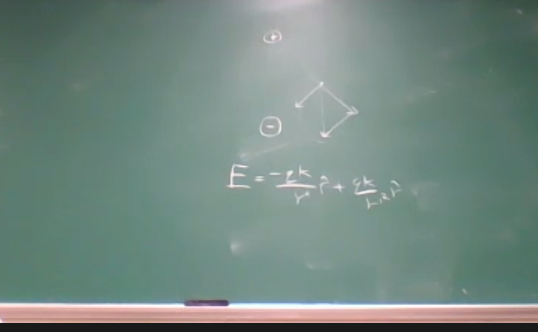 +
-
E = -qk/r² r̂ + qk/r² r̂